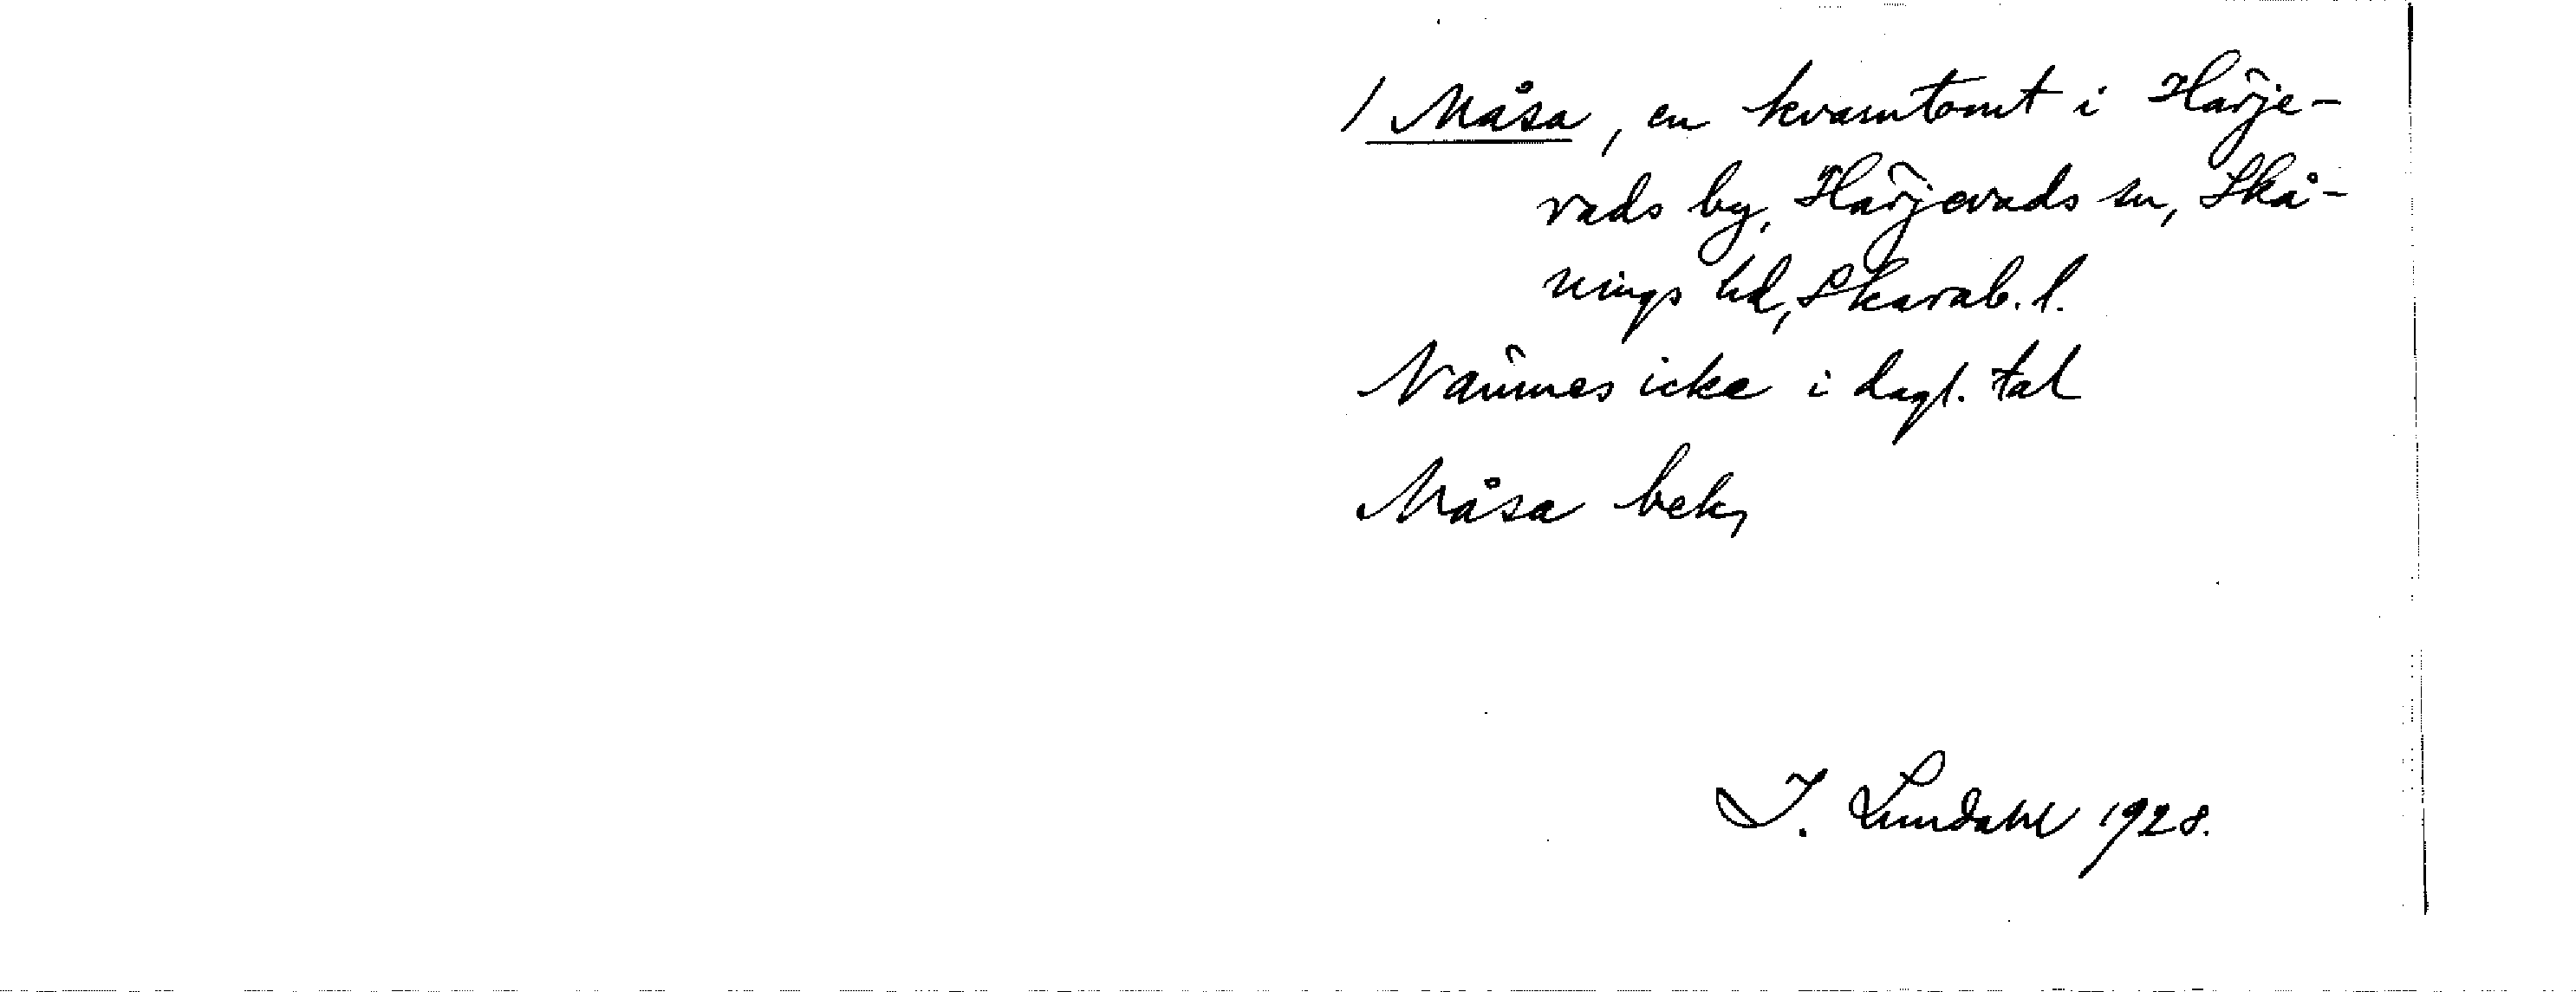 / Måsa, en kvarntomt i Härje-
vads by, Härjevads sn, Skå-
nings hd, Skarab. l.
Nämnes icke i dagl. tal
Måsa bek,
I. Lundahl 1928.